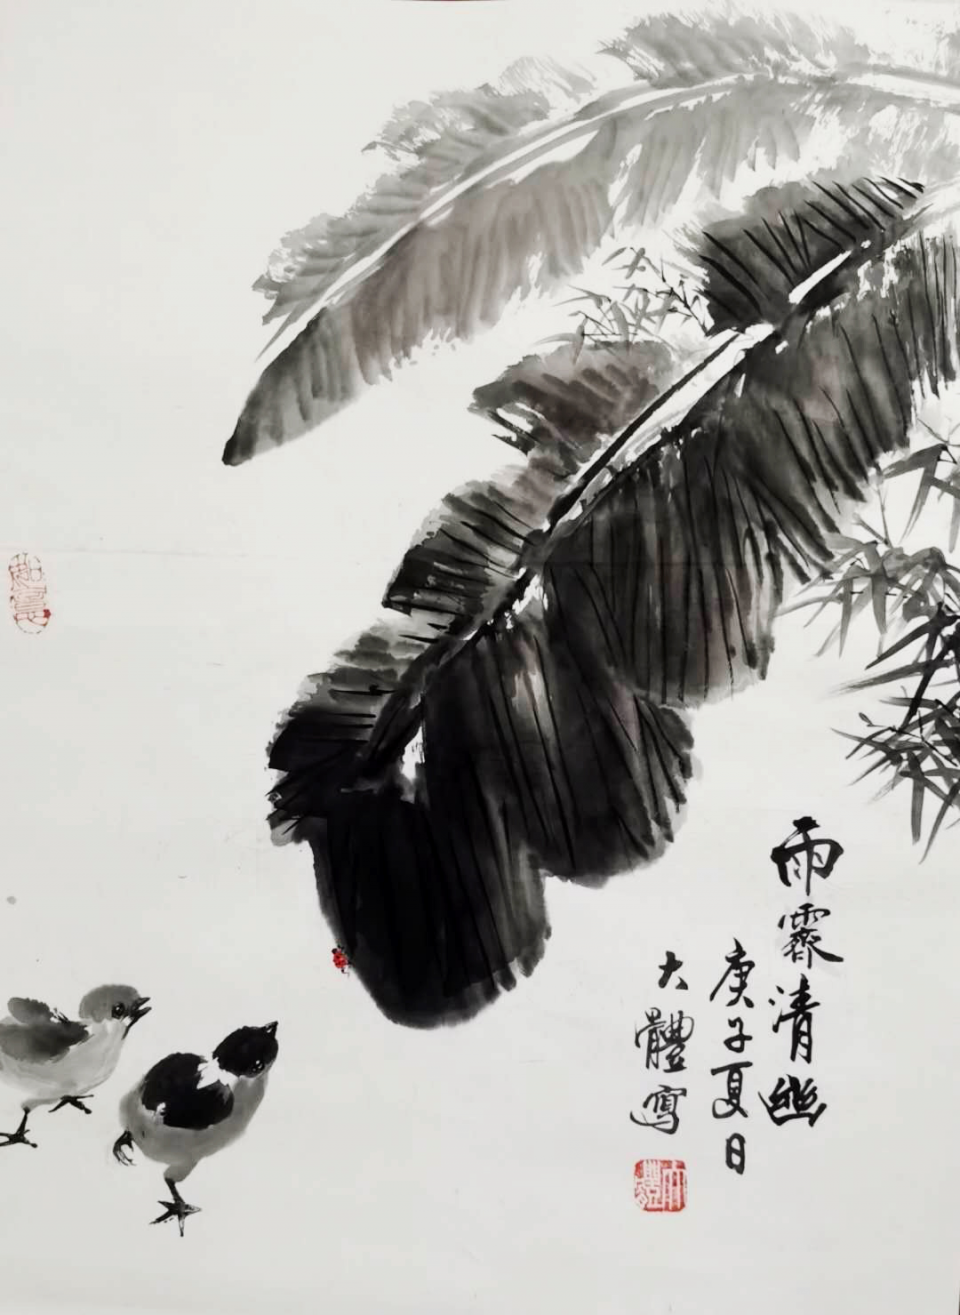 雨霽清幽
庚子夏日
大體寫